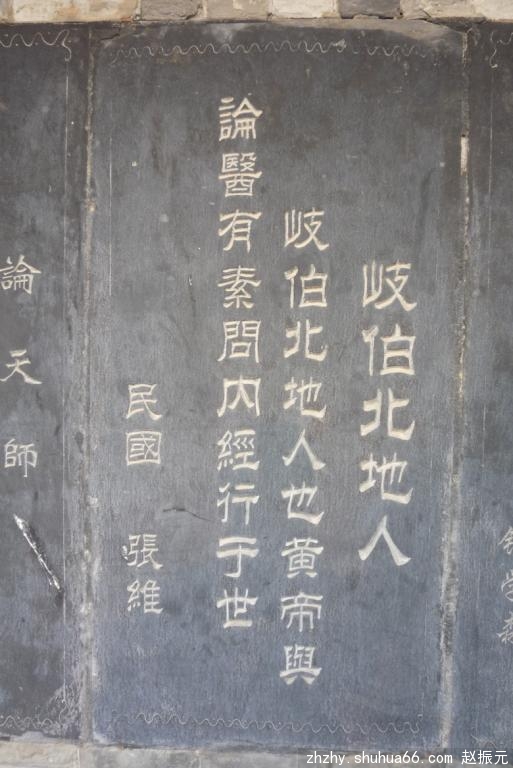 岐伯北地人
岐伯北地人也黄帝與
論醫有素問内經行于世
民國 張維
論天師
zhzhy.shuhua66.com 赵振元